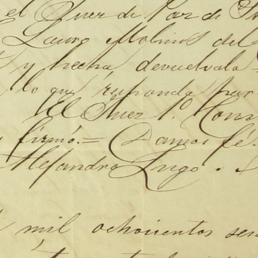 el Juez de Paz de
Lauro Molinos del
y hecha devuelvala
lo que responda por
El Juez 1o. Cons
y firmó.= Damos fé.
Alejandro Lugo.
mil ochocientos se